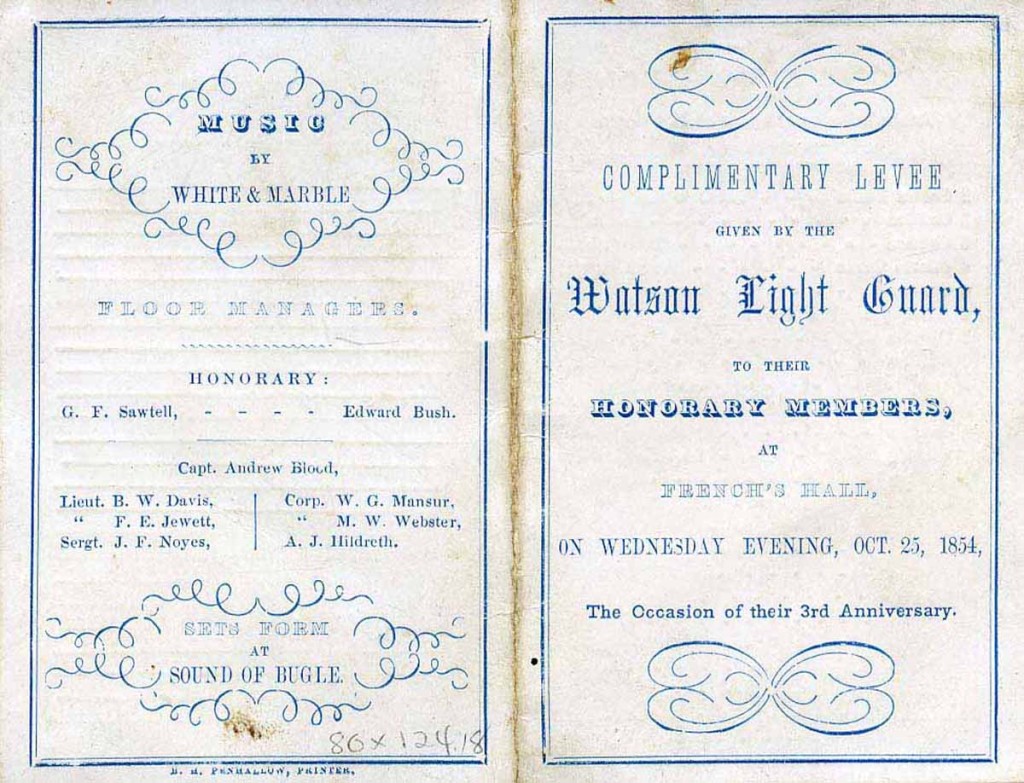 MUSIC
BY
WHITE & MARBLE
FLOOR MANAGERS.
HONORARY:
G. F. Sawtell, - - - - Edward Bush.
Capt. Andrew Blood,
Lieut. B. W. Davis,
“ F. E. Jewett,
Sergt. J. F. Noyes,
Corp. W. G. Mansur,
“ M. W. Webster,
A. J. Hildreth.
SETS FORM
AT
SOUND OF BUGLE.
86 x 124.18
B. H. PENHALLOW, PRINTER.
COMPLIMENTARY LEVEE
GIVEN BY THE
Watson Light Guard,
TO THEIR
HONORARY MEMBERS,
AT
FRENCH'S HALL,
ON WEDNESDAY EVENING, OCT. 25, 1854,
The Occasion of their 3rd Anniversary.